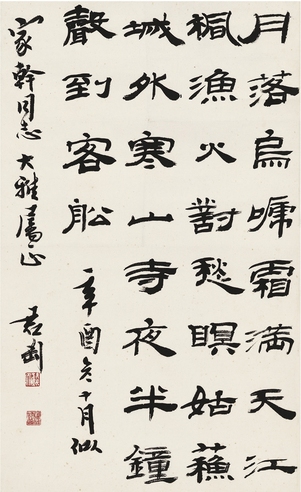 月落烏啼霜滿天江
楓漁火對愁瞑姑蘓
城外寒山寺夜半鐘
聲到客舩
辛酉冬十月似
家幹同志大雅屬正